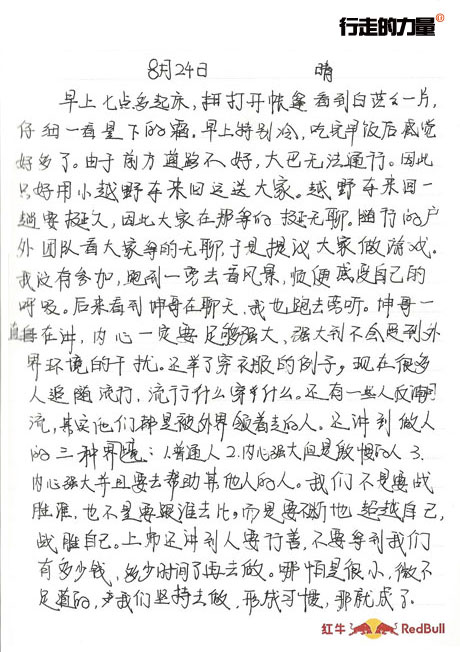 行走的力量
8月24日 晴
早上七点多起床,打开帐篷看到白茫茫一片,
仔细一看是下的霜。早上特别冷,吃完早饭后感觉
好多了。由于前方道路不好,大巴无法通行。因此
只好用小越野车来回运送大家。越野车来回一
趟要挺久,因此大家在那等的挺无聊。随行的户
外团队看大家等的无聊,于是提议大家做游戏。
我没有参加,跑到一旁去看风景,顺便感受自己的
呼吸。后来看到坤哥在聊天,我也跑去旁听。坤哥一
直在讲,内心一定要足够强大,强大到不会受到外
界环境的干扰。还举了穿衣服的例子,现在很多
人追随流行,流行什么穿什么。还有一些人反潮
流,其实他们都是被外界领着走的人。还讲到做人
的三种界境:1.普通人 2.内心强大但是傲慢的人 3.
内心强大并且要去帮助其他人的人。我们不是要战
胜谁,也不是要跟谁去比,而是要不断地超越自己,
战胜自己。上师还讲到人要行善,不要等到我们
有多少钱,多少时间了再去做。哪怕是很小,微不
足道的,我们坚持去做,形成习惯,那就成了。
红牛 RedBull